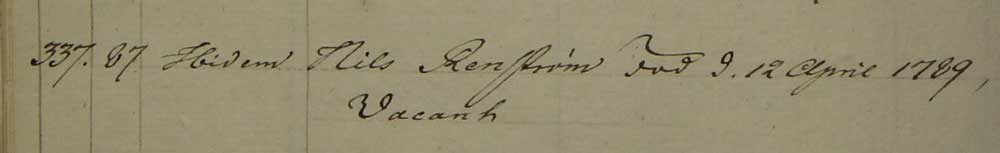 337. 87 Ibidem Nils Renström Död d. 12 April 1789,
Vacant